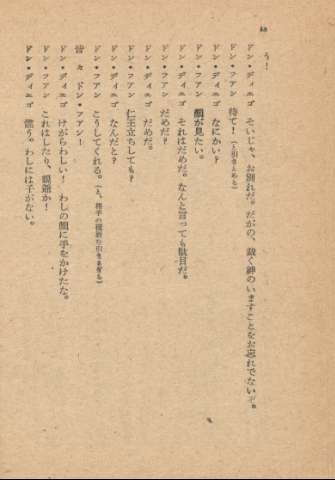 48
う!
ドン・ディエゴ　そいじゃ、お別れだ。だがの、裁く神のいますことをお忘れでないぞ。
ドン・フアン　待て!（と引きとめる）
ドン・ディエゴ　なにかい?
ドン・フアン　顔が見たい。
ドン・ディエゴ　それはだめだ。なんと言っても駄目だ。
ドン・フアン　だめだ?
ドン・ディエゴ　だめだ。
ドン・フアン　仁王立ちしても?
ドン・ディエゴ　なんだと?
ドン・フアン　こうしてくれる。（と、相手の覆面を引きあける）
皆々　ドン・フアン!
ドン・ディエゴ　けがらわしい!　わしの顔に手をかけたな。
ドン・フアン　これはしたり、親爺か!
ドン・ディエゴ　違う。わしには子がない。